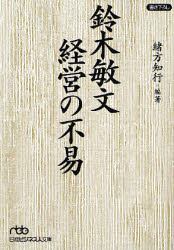 書き下ろし
鈴木敏文
経営の不易
緒方知行=編著
nbb
日経ビジネス人文庫